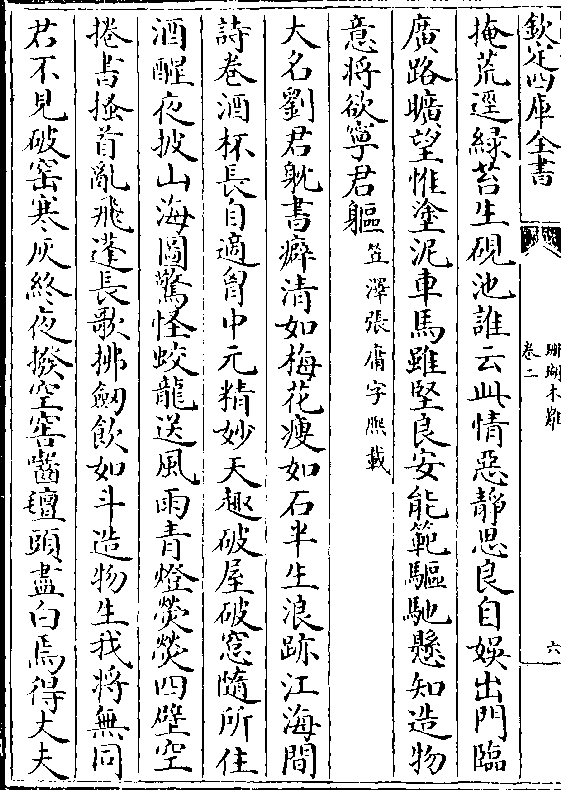 欽定四庫全書
珊瑚木難
卷二
六
掩荒逕綠苔生硯池誰云此情惡靜思良自娛出門臨
廣路曠望惟塗泥車馬雖堅良安能範驅馳懸知造物
意將欲寧君軀
笠澤張庸字熈載
大名劉君躭書癖清如梅花瘦如石半生浪跡江海間
詩卷酒杯長自適胷中元精妙天趣破屋破窓隨所住
酒醒夜披山海圖驚怪蛟龍送風雨青燈熒熒四壁空
捲書搔首亂飛蓬長歌拂劒飲如斗造物生我將無同
君不見破窑寒灰終夜撥空窖嚙氊頭盡白焉得大夫